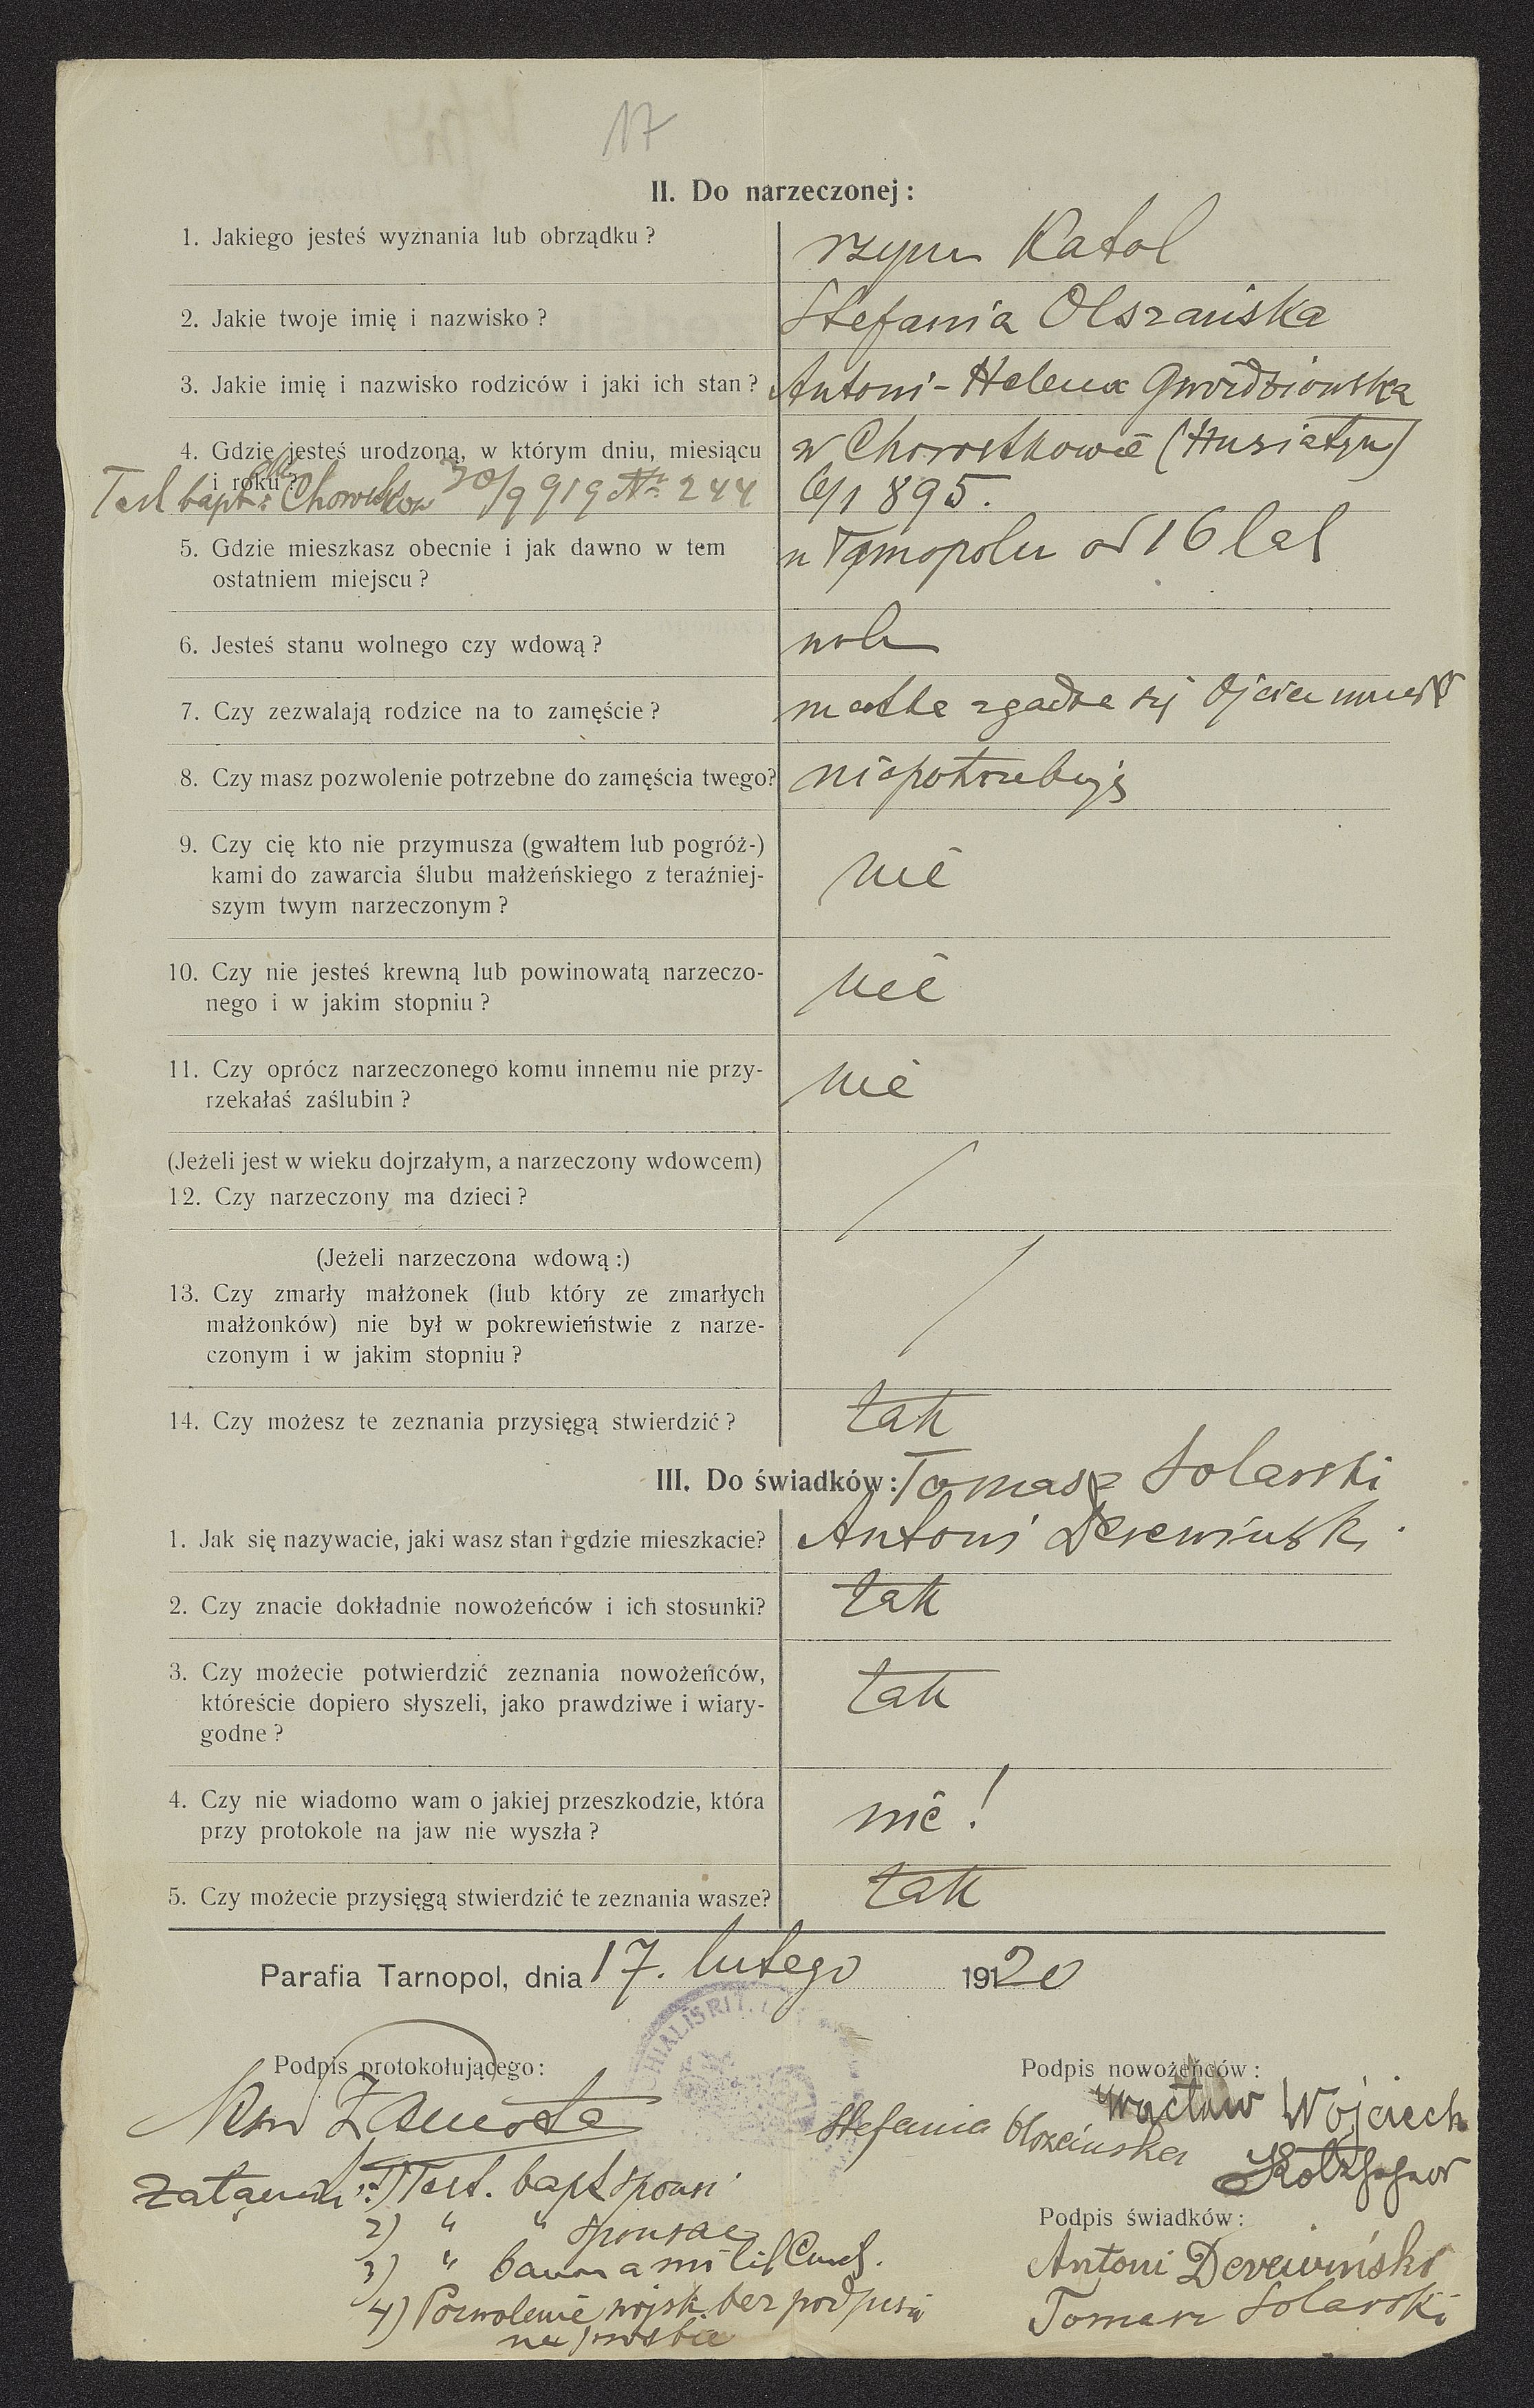 17
II. Do narzeczonej:
1. Jakiego jesteś wyznania lub obrządku?
rzym Katol
2. Jakie twoje imię i nazwisko?
Stefania Olszańska
3. Jakie imię i nazwisko rodziców i jaki ich stan?
Antoni - Helena Gwoździowska
4. Gdzie jesteś urodzona, w którym dniu, miesiącu
w Chorostkowie (Husiatyn)
i roku?
Test bapt: Chorostkow 30/9 919 Nr 244
6/1 895.
5. Gdzie mieszkasz obecnie i jak dawno w tem
w Tarnopolu od 16 lat
ostatniem miejscu?
6. Jesteś stanu wolnego czy wdową?
woln
7. Czy zezwalają rodzice na to zamęście?
matka zgadza się Ojciec
8. Czy masz pozwolenie potrzebne do zamęścia twego?
niepotrzebuję
9. Czy cię kto nie przymusza (gwałtem lub pogróż-)
kami do zawarcia ślubu małżeńskiego z teraźniej-
szym twym narzeczonym?
nie
10. Czy nie jesteś krewną lub powinowatą narzeczo-
nego i w jakim stopniu?
nie
11. Czy oprócz narzeczonego komu innemu nie przy-
rzekałaś zaślubin?
nie
(Jeżeli jest w wieku dojrzałym, a narzeczony wdowcem)
12. Czy narzeczony ma dzieci?
(Jeżeli narzeczona wdową:)
13. Czy zmarły małżonek (lub który ze zmarłych
małżonków) nie był w pokrewieństwie z narze-
czonym i w jakim stopniu?
14. Czy możesz te zeznania przysięgą stwierdzić?
tak
III. Do świadków:
Tomasz Solarski
1. Jak się nazywacie, jaki wasz stan i gdzie mieszkacie?
Antoni Derewiński
2. Czy znacie dokładnie nowożeńców i ich stosunki?
tak
3. Czy możecie potwierdzić zeznania nowożeńców,
któreście dopiero słyszeli, jako prawdziwe i wiary-
godne?
tak
4. Czy nie wiadomo wam o jakiej przeszkodzie, która
przy protokole na jaw nie wyszła?
nie!
5. Czy możecie przysięgą stwierdzić te zeznania wasze?
tak
Parafia Tarnopol, dnia 17. lutego 1920
Podpis protokołującego:
Podpis nowożeńców:
Wacław Wojciech
Stefania Olszańska
1) Test. bapt sponsi
2) " " sponsae
3) "
Podpis świadków:
Antoni Derewiński
4) Pozwolenie wojsk. bez podpisu
Tomasz Solarski
na prośbie